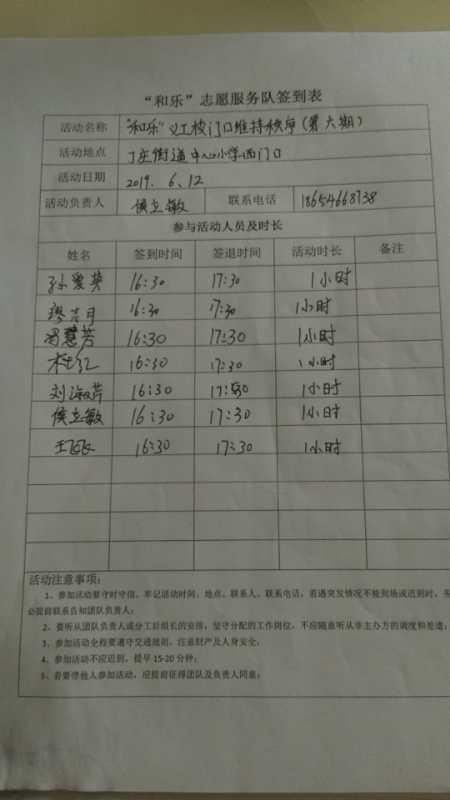 “和乐”志愿服务队签到表
活动名称 “和乐”义工校门口维持秩序（第六期）
活动地点 丁庄街道中心小学西门口
活动日期 2019. 6、12
活动负责人 侯立敏 联系电话 18654668738
参与活动人员及时长
姓名 签到时间 签退时间 活动时长 备注
孙爱英 16:30 17:30 1小时
16:30 17:30 1小时
慧芳 16:30 17:30 1小时
杜红 16:30 17:30 1小时
刘海芹 16:30 17:30 1小时
侯立敏 16:30 17:30 1小时
王 16:30 17:30 1小时
活动注意事项：
1、参加活动要守时守信，牢记活动时间、地点、联系人、联系电话，若遇突发情况不能到场或迟到时，务
必提前联系告知团队负责人；
2、要听从团队负责人或分工组组长的安排，坚守分配的工作岗位，不应随意听从非主办方的调度和差遣；
3、参加活动全程要遵守交通规则，注意财产及人身安全；
4、参加活动不应迟到，提早 15-20 分钟；
5、若要带他人参加活动，应提前征得团队及负责人同意；